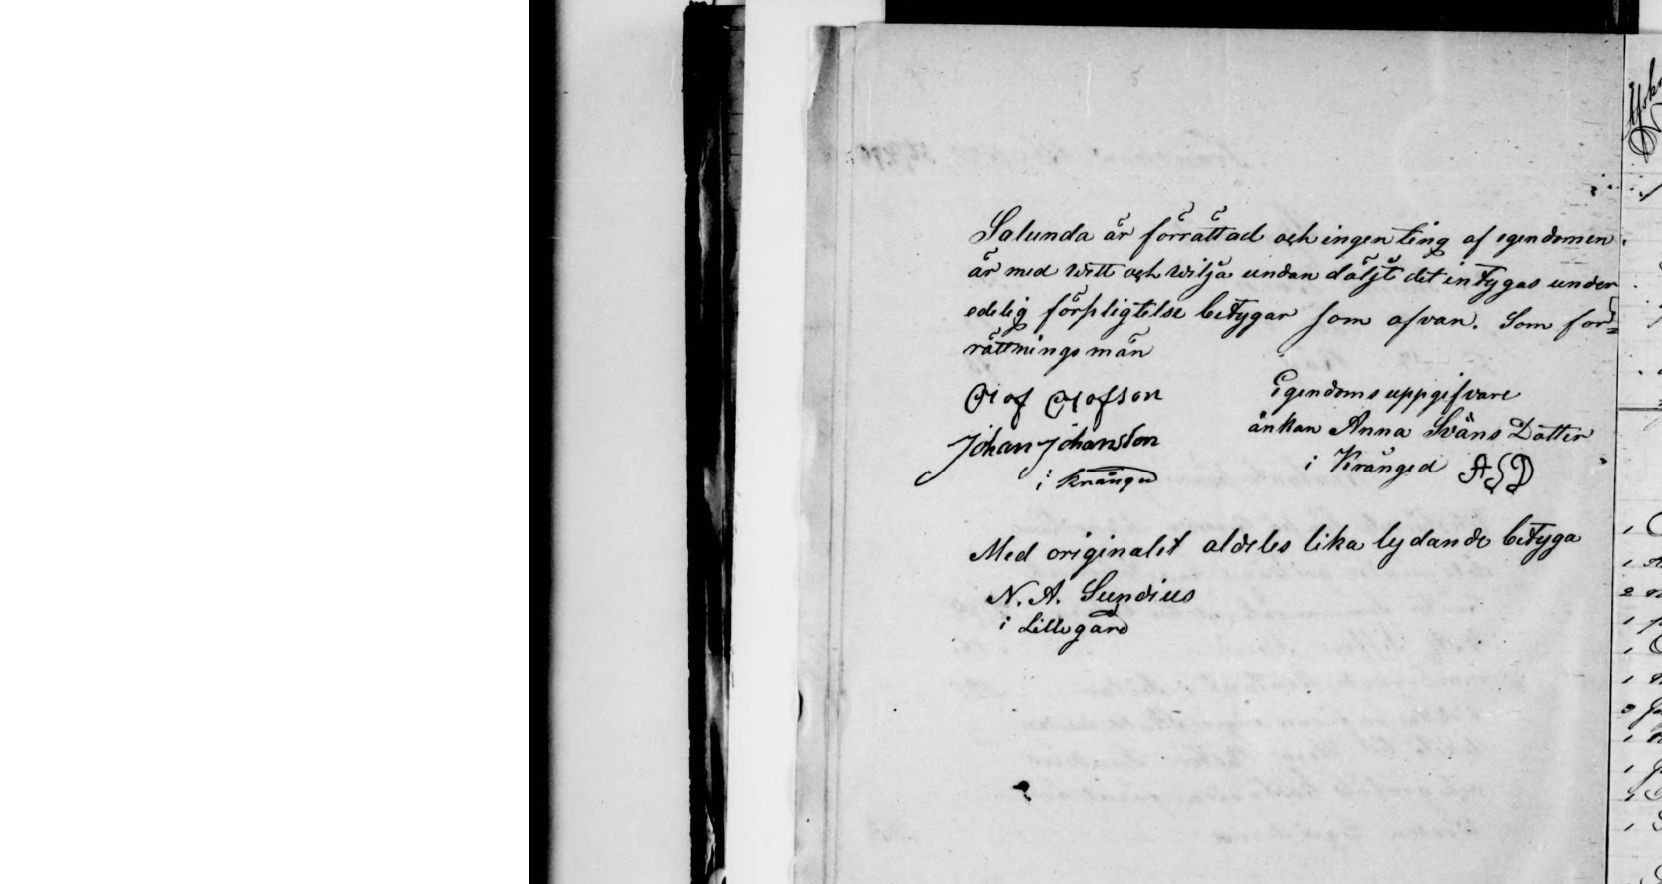 Salunda är förrättad och ingen ting af egendomen
är med wett och wilja undan döljt det intygas under
edelig förpligtelse betygar som ofvan. Som för=
rättnings män
Olof Olofson
Johan Johanson
i Krånged
Egendoms uppgifvare
änkan Anna Swäns Dotter
i Krånged ASD
Med originalet aldeles lika lydande betyga
N. A. Sundius
i Lillegård